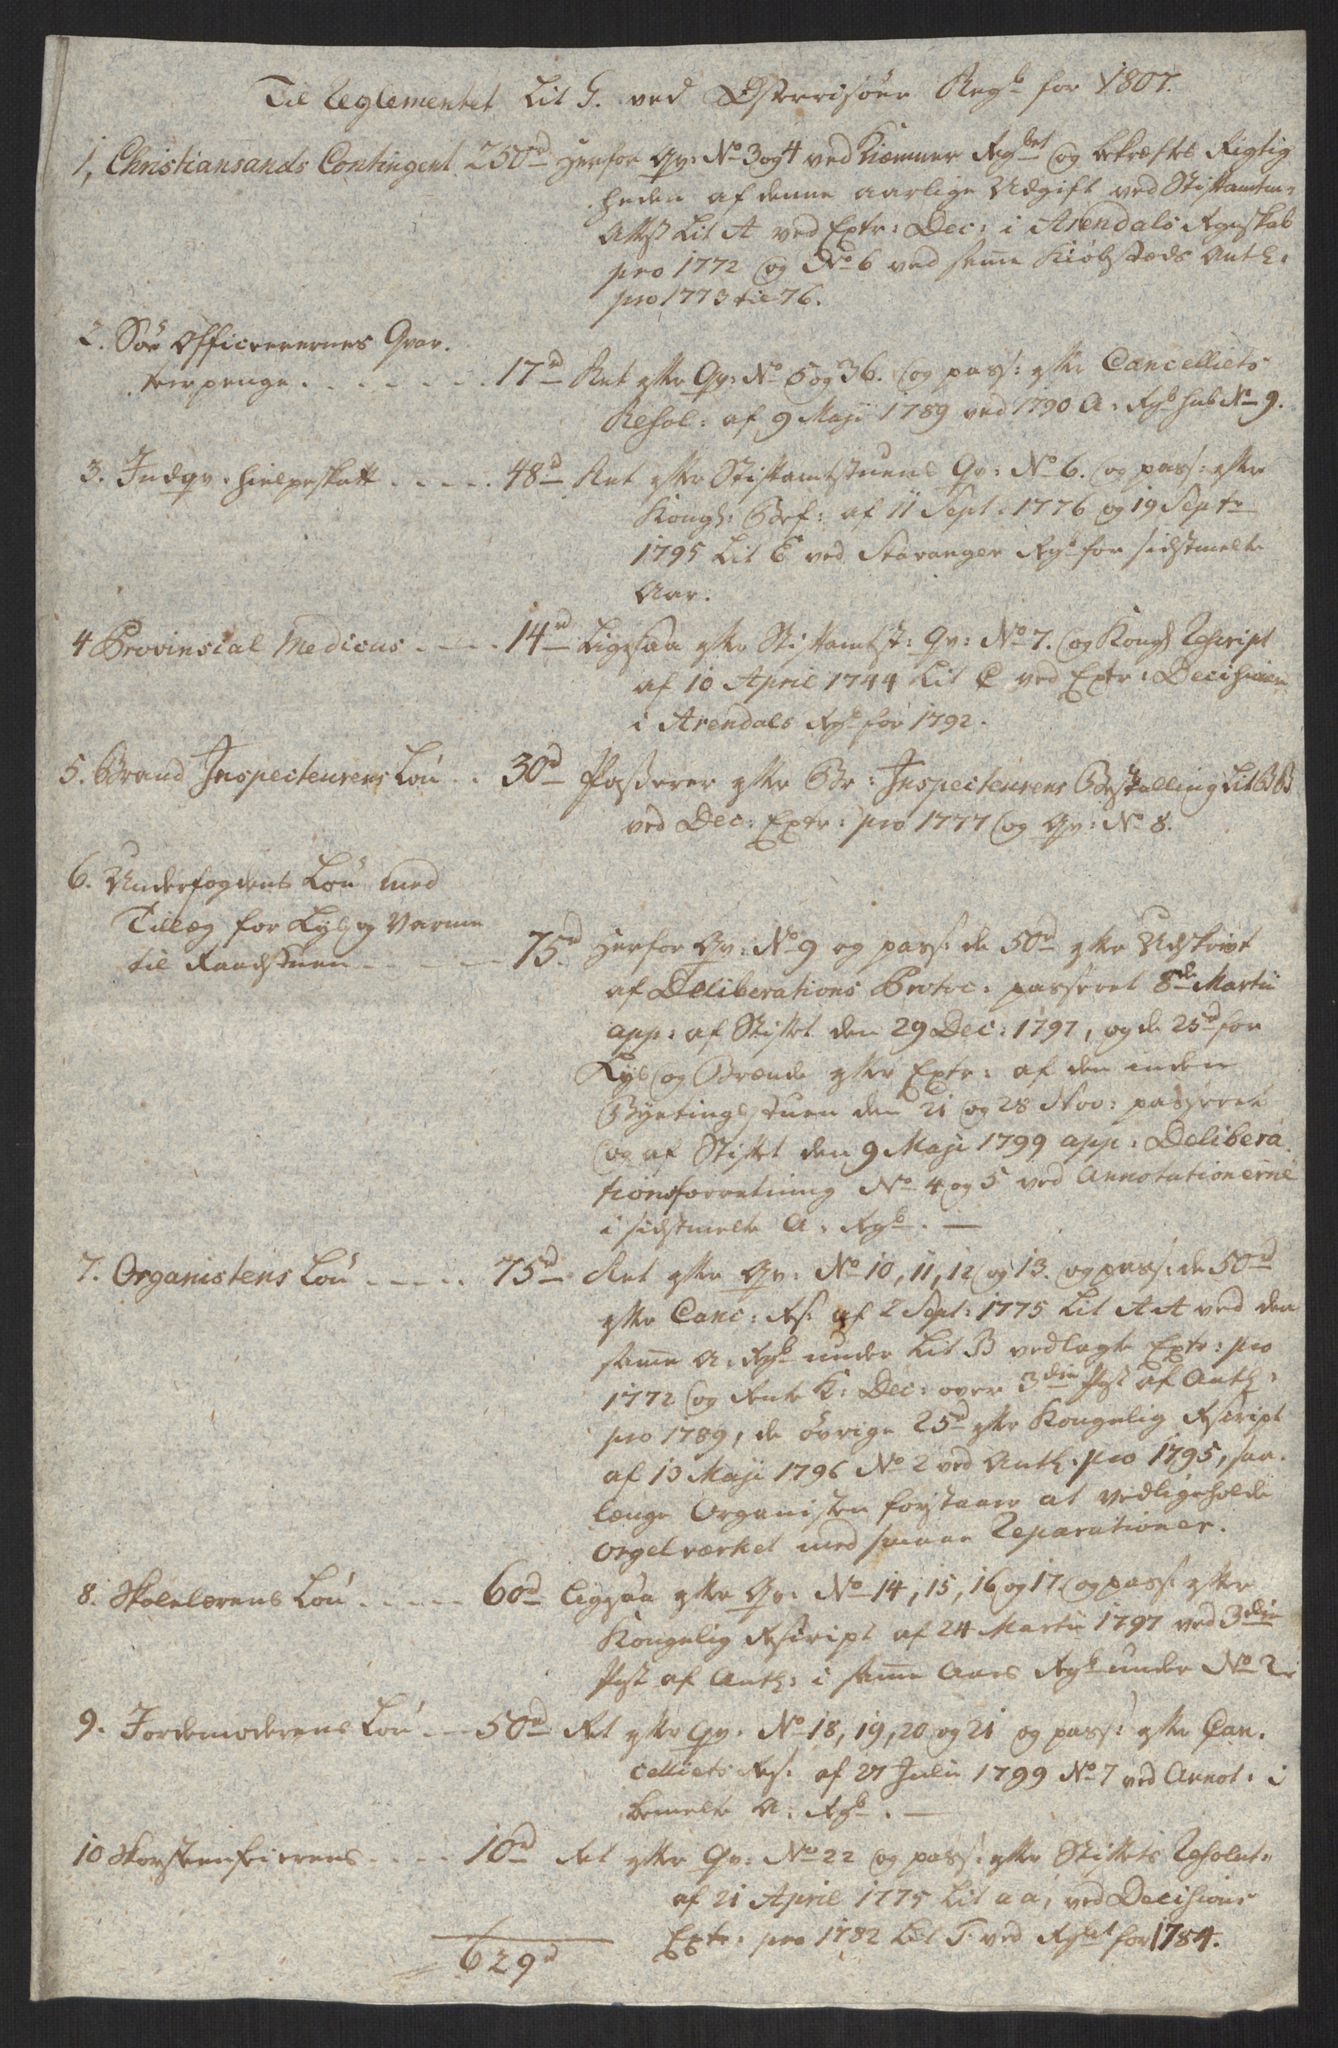 Til Reglementet Lit G. ved Østerrisöer Regsk for 1807.
1, Christiansands Contingent 250rd Herfor Qv: No 3 og 4 ved Kiæmner Regskbet og bekræftes Rigtig
heden af denne aarlige Udgift ved Stiftamtm:
Attest Lit A ved Extr: Dec: i Arendals Regnskab
pro 1772 og No 6 ved samme Kiöbstæds Antk:
pro 1773 til 76.
2. Söe Officerernes Qvar-
teerpenge . . . . . . . 17rd Ret efter Qv: No 5 og 36. og pass: efter Cancelliets
Resol: af 9 Maji 1789 ved 1790 A: Regskab No 9.
3. Indqv. hielpeskatt . . . . . 48rd Ret efter Stiftamtstuens Qv: No 6. og pass: efter
Kongl: Bef: af 11 Sept: 1776 og 19 Septr
1795 Lit E ved Stavanger Rgsk for sidstmelte
Aar.
4 Provinsial Medicus . . . . 14rd Ligesaa efter Stiftamtst: Qv: No 7. og Kongl Rescript
af 10 April 1744 Lit C ved Extr: Decisioner
i Arendals Rgsk for 1792.
5. Brand Inspecteurens Lön . . 30rd Passerer efter Br: Inspecteurens Bestalling Lit BB
ved Dec: Extr: pro 1777 og Qv: No 8.
6. Underfogdens Lön med
Tillæg for Lys og Varme
til Raadstuen . . . . . 75rd Herfor Qv: No 9 og pass: de 50rd efter Udskrivt
af Deliberations Protoc: passeret 8de Martii
app: af Stiftet den 29 Dec: 1797, og de 25rd for
Lys og Brænde efter Extr: af den inden
Byetingstuen den 21 og 28 Nov: passerede
og af Stiftet den 9 Maji 1799 app: Delibera
tionsforretning No 4 og 5 ved Annotationerne
i sidstmelte A: Rgsk. —
7. Organistens Lön . . . . . 75rd Ret efter Qv: No 10, 11, 12 og 13. og pass: de 50rd
efter Canc: Rs: af 2 Sept: 1775 Lit AA ved den
samme A: Rgsk under Lit B vedlagte Extr: pro
1772 og Rente K: Dec: over 3die Post af Antk:
pro 1789, de övrige 25rd efter Kongelig Rescript
af 13 Maji 1796 No 2 ved Antk: pro 1795, saa-
længe Organisten forstaaer at vedligeholde
Orgelværket med smaae Reparationer.
8. Skolelærens Lön . . . . . 60rd Ligesaa efter Qv: No 14, 15, 16 og 17 og pass: efter
Kongelig Rescript af 24 Martii 1797 ved 3die
Post af Antk: i samme Aars Rgsk under No 2.
9. Jordemoderens Lön . . . 50rd Ret efter Qv: No 18, 19, 20 og 21 og pass: efter Can-
celliets Rs: af 27 Julii 1799 No 7 ved Annot: i
bemelte A: Rgsk. —
10 Skorsteenfeierens . . . . 10rd Ret efter Qv: No 22 og pass: efter Stiftets Resolut:
af 21 April 1775 Lit aa, ved Decisions
Extr: pro 1782 Lit T ved Rgskbet for 1784.
629rd